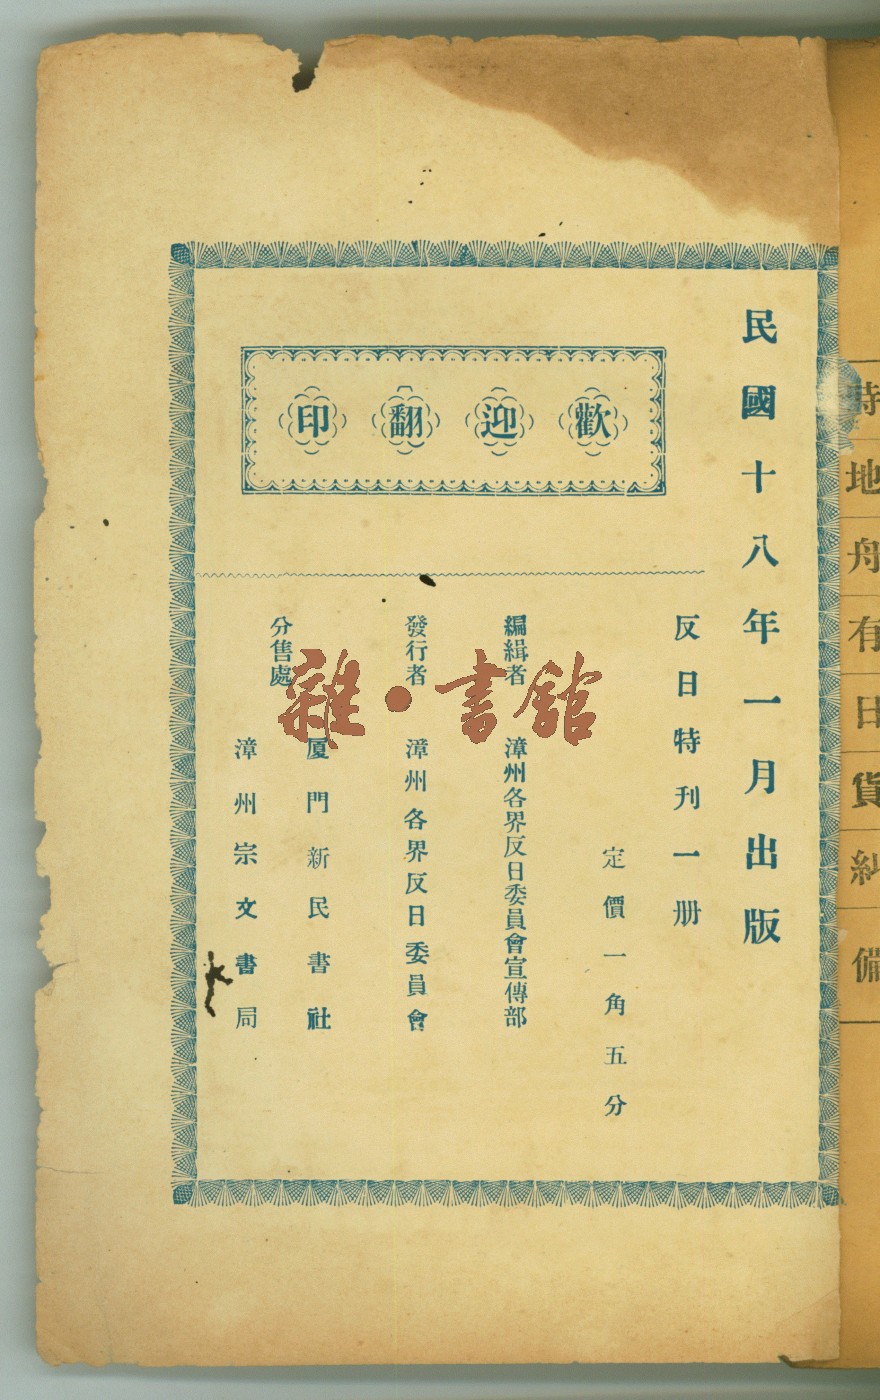 民國十八年一月出版
歡迎翻印
反日特刊一册
定價一角五分
編緝者 漳州各界反日委員會宣傳部
發行者 漳州各界反日委員會
分售處
厦門新民書社
漳州宗文書局
雜·書館
時
地
舟
有
日
貨
糾
備